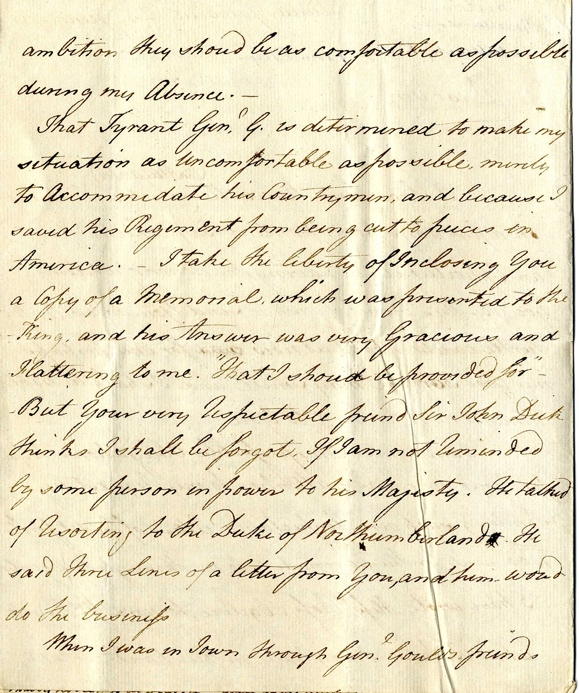 ambition they should be as comfortable as possible
during my Absence. —
That Tyrant Gen.l G. is determined to make my
situation as uncomfortable as possible, merely
to Accommedate his Countrymen, and because I
saved his Regiment from being cut to pieces in
America. – I take the liberty of Inclosing You
a Copy of a Memorial, which was presented to the
King, and his Answer was very Gracious and
Flattering to me. "That I should be provided for" –
But Your very respectable friend Sir John Dick
thinks I shall be forgot, If I am not reminded
by some person in power to his Majesty. He talked
of resorting to the Duke of Northumberland. He
said three Lines of a letter from You, and him would
do the business
When I was in Town through Gen.l Gould's friends